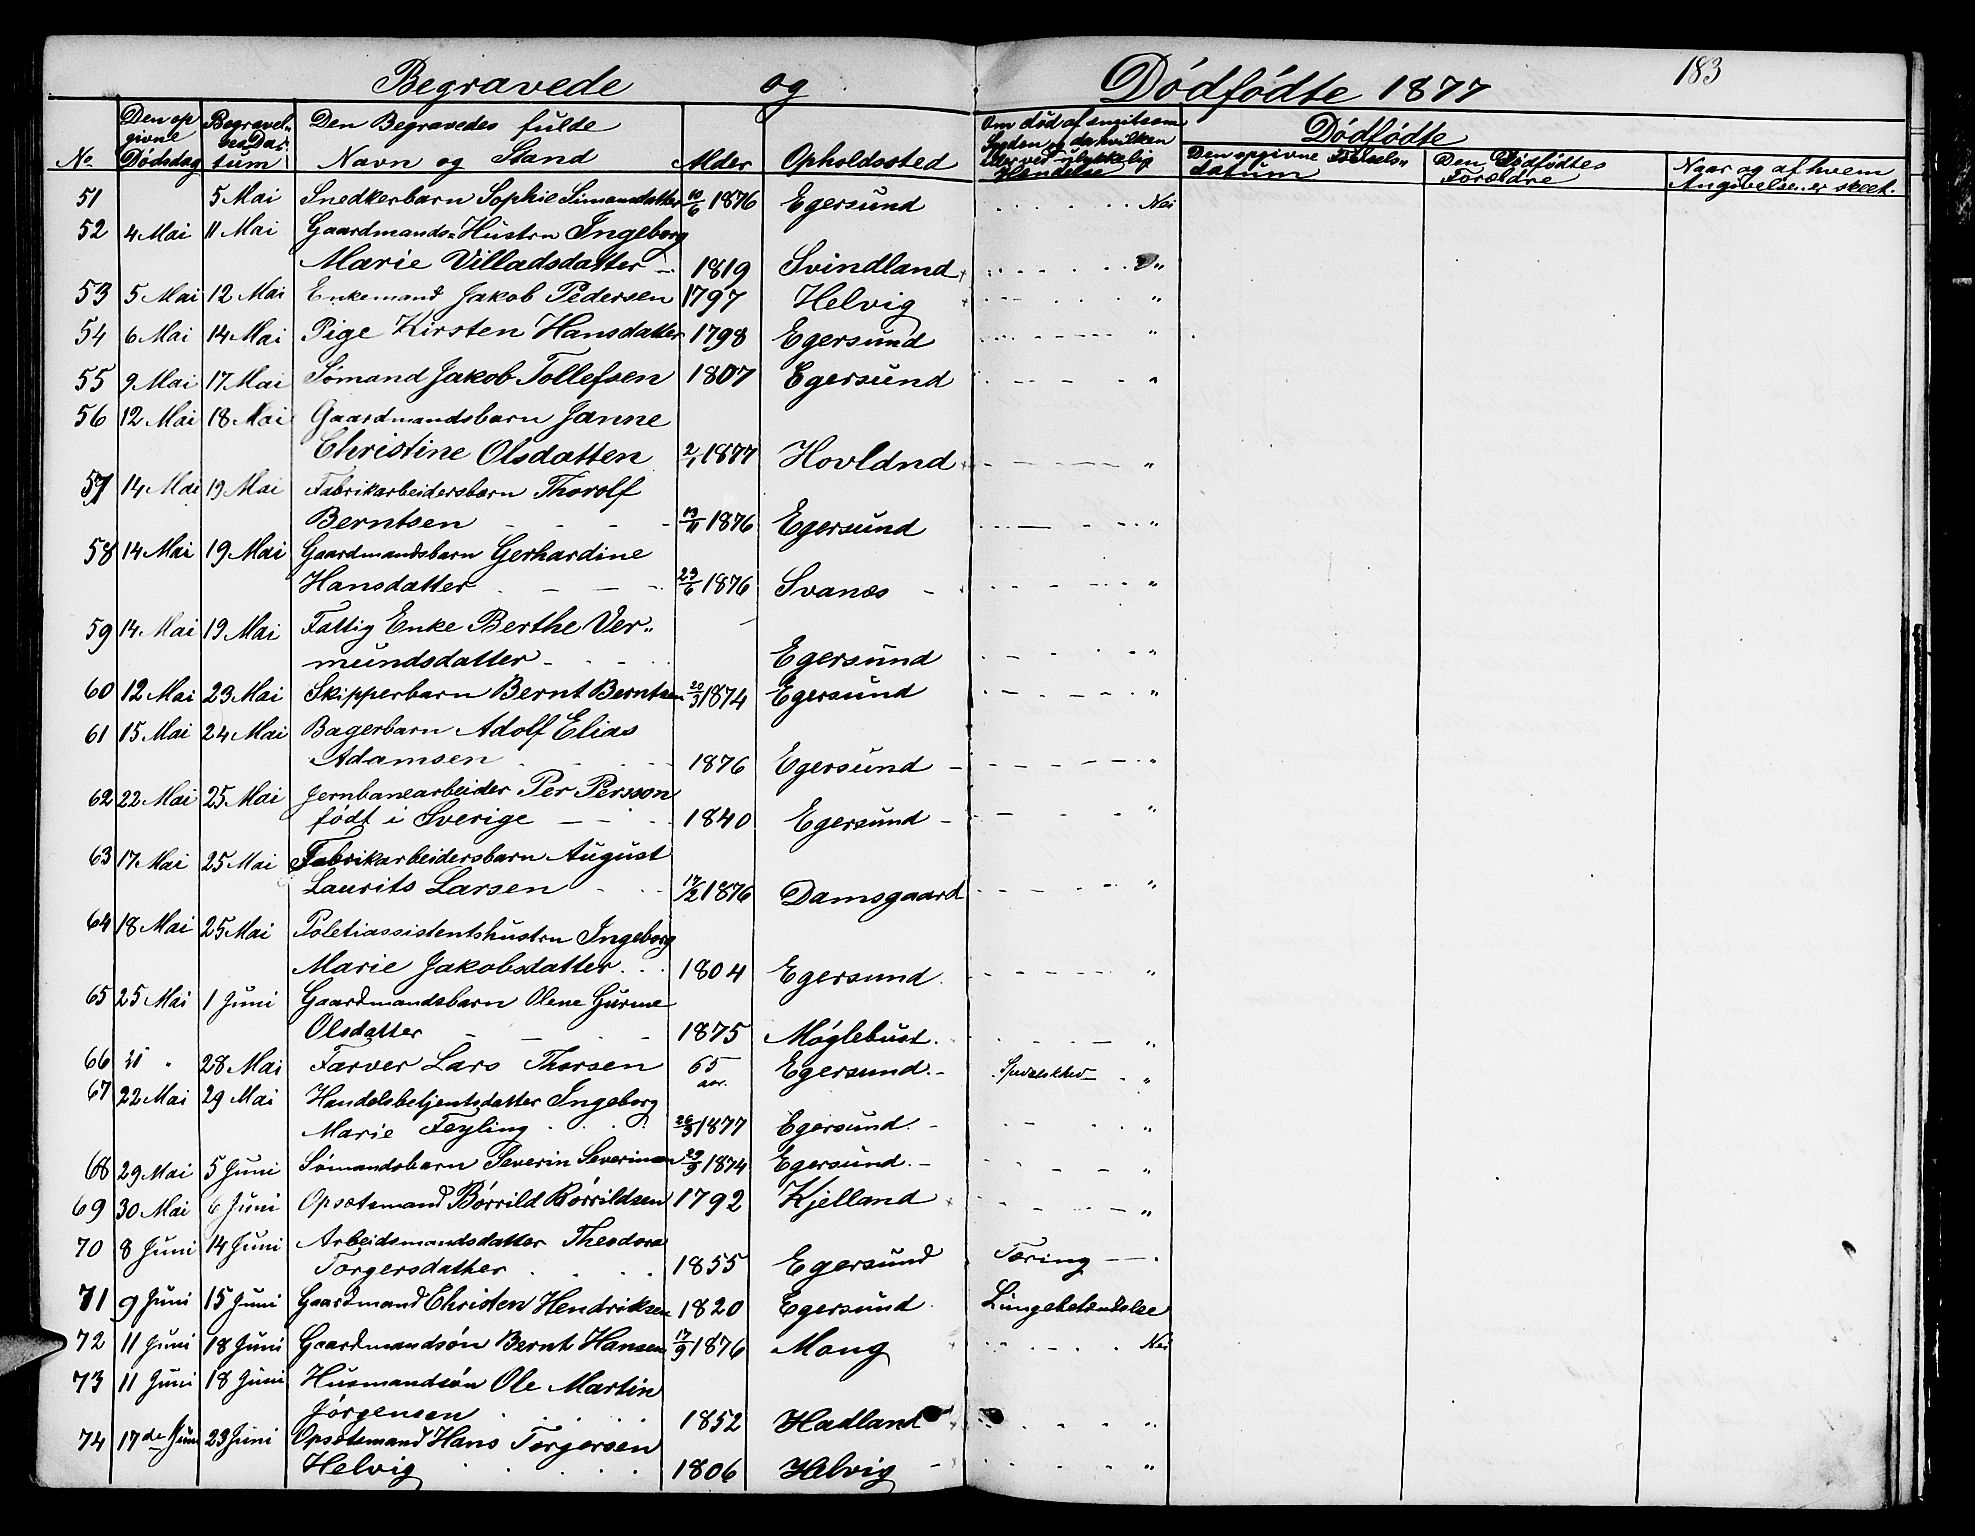 183
Begravede og Dödfödte 1877
No Den opgivne Dödsdag Begravelsens Datum Den Begravedes fulde Navn og Stand Alder Opholdssted Om död af smitsom Sygdom og da hvilken eller ved ulykkelig Hendelse Dödfödte
Den opgivne Födsels- datum Den Dödfödtes Forældre Naar og af hvem Angivelsen er skeet.
51 5 Mai Snedkerbarn Sophie Simonsdatter 10/6 1876 Egersund Nei
52 4 Mai 11 Mai Gaardmands-Hustru Ingeborg
Marie Villadsdatter 1819 Svindland "
53 5 Mai 12 Mai Enkemand Jakob Pedersen 1797 Helvig "
54 6 Mai 14 Mai Pige Kirsten Hansdatter 1798 Egersund "
55 9 Mai 17 Mai Sömand Jakob Tollefsen 1807 Egersund "
56 12 Mai 18 Mai Gaardmandsbarn Janne
Christine Olsdatten 2/1 1877 Hovldnd "
57 14 Mai 19 Mai Fabrikarbeidersbarn Thorolf
Berntsen 13/11 1876 Egersund "
58 14 Mai 19 Mai Gaardmandsbarn Gerhardine
Hansdatter 23/6 1876 Svanæs "
59 14 Mai 19 Mai Fattig Enke Berthe Ver-
mundsdatter Egersund "
60 12 Mai 23 Mai Skipperbarn Bernt Berntsen 20/3 1874 Egersund "
61 15 Mai 24 Mai Bagerbarn Adolf Elias
Adamsen 1876 Egersund "
62 22 Mai 25 Mai Jernbanearbeider Per Persson
födt i Sverige 1840 Egersund "
63 17 Mai 25 Mai Fabrikarbeidersbarn August
Laurits Larsen 17/2 1876 Damsgaard "
64 18 Mai 25 Mai Poletiassistentshustru Ingeborg
Marie Jakobsdatter 1804 Egersund "
65 25 Mai 1 Juni Gaardmandsbarn Olene Gurine
Olsdatter 1875 Möglebust "
66 21 " 28 Mai Farver Lars Thorsen 65 aar. Egersund Spedalskhed "
67 22 Mai 29 Mai Handelsbetjentsdatter Ingeborg
Marie Feyling 26/3 1877 Egersund "
68 29 Mai 5 Juni Sömandsbarn Severin Severinsen 29/9 1874 Egersund "
69 30 Mai 6 Juni Opsætsmand Börrild Börrildsen 1792 Kjelland "
70 8 Juni 14 Juni Arbeidsmandsdatter Theodora
Torgersdatter 1855 Egersund Tæring
71 9 Juni 15 Juni Gaardmand Christen Hendriksen 1820 Egersund Lungebetændelse
72 11 Juni 18 Juni Gaardmandsön Bernt Hansen 17/9 1876 Mong Nei
73 11 Juni 18 Juni Husmandsön Ole Martin
Jörgensen 1852 Hadland "
74 17de Juni 23 Juni Opsætsmand Hans Torgersen
Helvig 1806 Helvig "